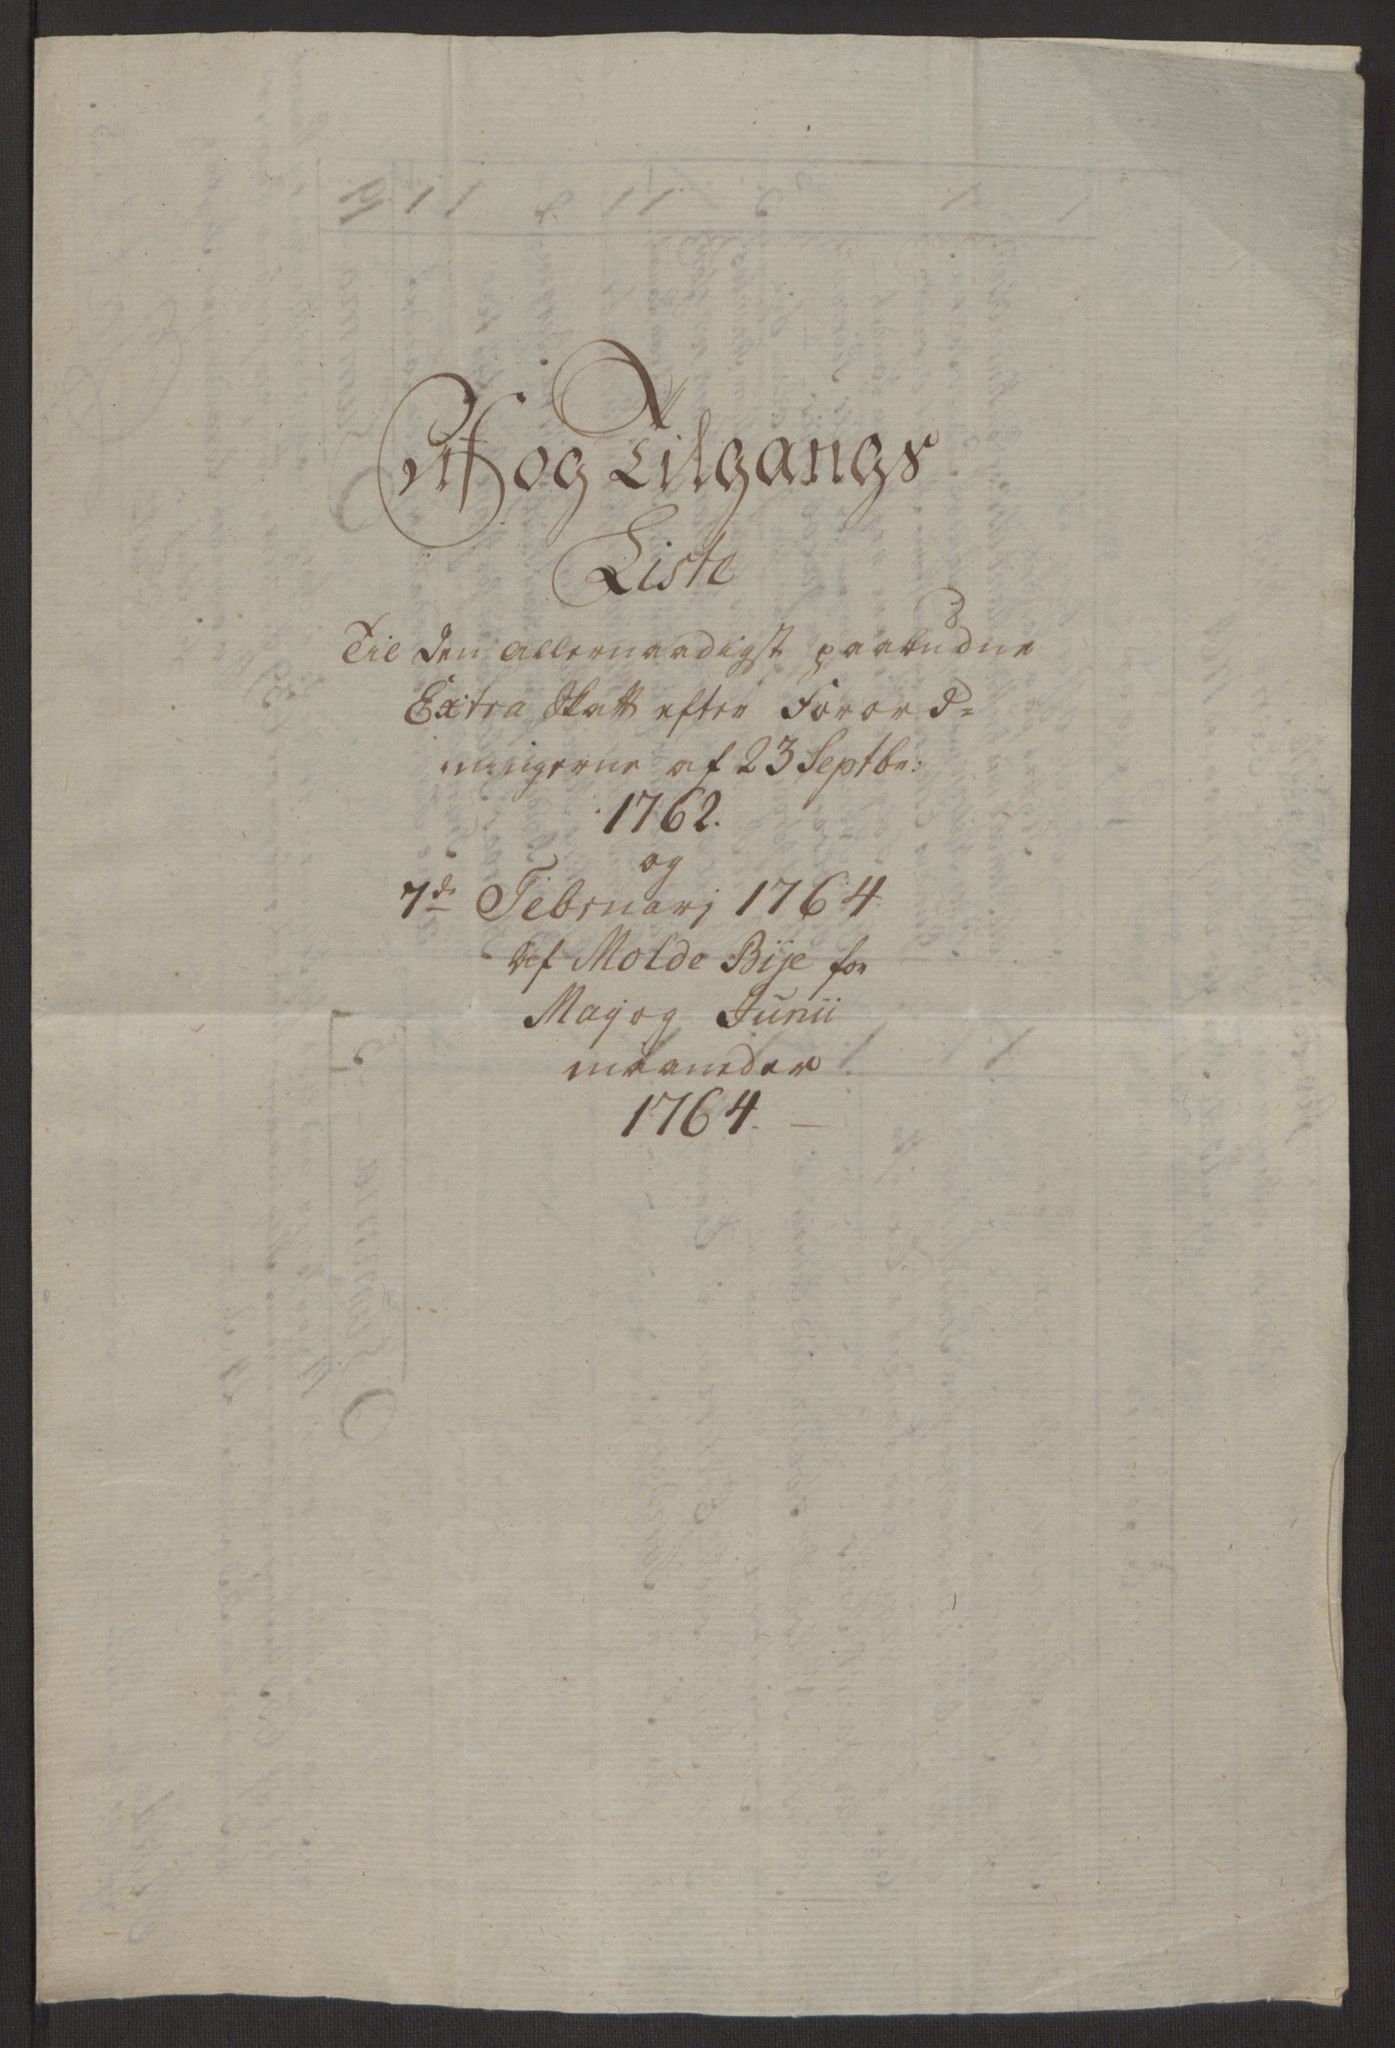 Af og Tilgangs
Liste
Til den allernaadigst paabudne
Extra Skatt efter Forord=
ningerne af 23 Septbr:
1762.
og
7de Februarj 1764
af Molde Bÿe for
Maÿ og Junii
maaneder
1764.